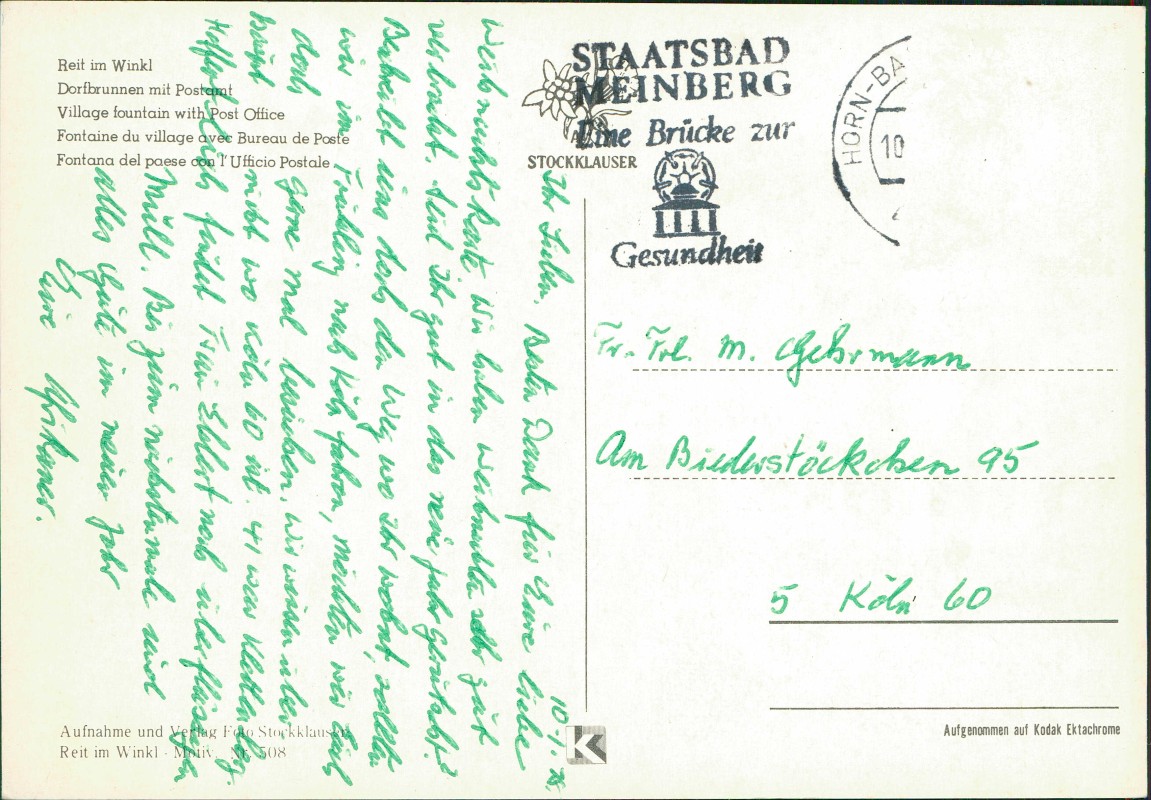 Reit im Winkl
Dorfbrunnen mit Postamt
Village fountain with Post Office
Fontaine du village avec Bureau de Poste
Fontana del paese con l'Ufficio Postale
STOCKKLAUSER
STAATSBAD
MEINBERG
Eine Brücke zur
Gesundheit
HORN-BA
10
10.1.
Ihr Lieben. Besten Dank für Eure liebe
Weihnachtskarte. Wir haben Weihnachten sehr gut
verbracht. Seid Ihr gut in das neue Jahr gerutscht?
Beschreibt uns doch den Weg wo Ihr wohnt, sollten
wir im Frühling nach Köln fahren, möchten wir Euch
doch gerne mal besuchen. Wir wissen über
nicht wo Köln 60 ist. 41 war
Hoffentlich findet Frau Ebbert noch
Müll. Bis zum nächstenmale und
alles Gute im neuen Jahr
Eure Afrikaner.
Fr. Frl. M. Gehrmann
Am Biederstöckchen 95
5 Köln 60
K
Aufnahme und Verlag Foto Stockklauser
Reit im Winkl - Motiv Nr. 508
Aufgenommen auf Kodak Ektachrome